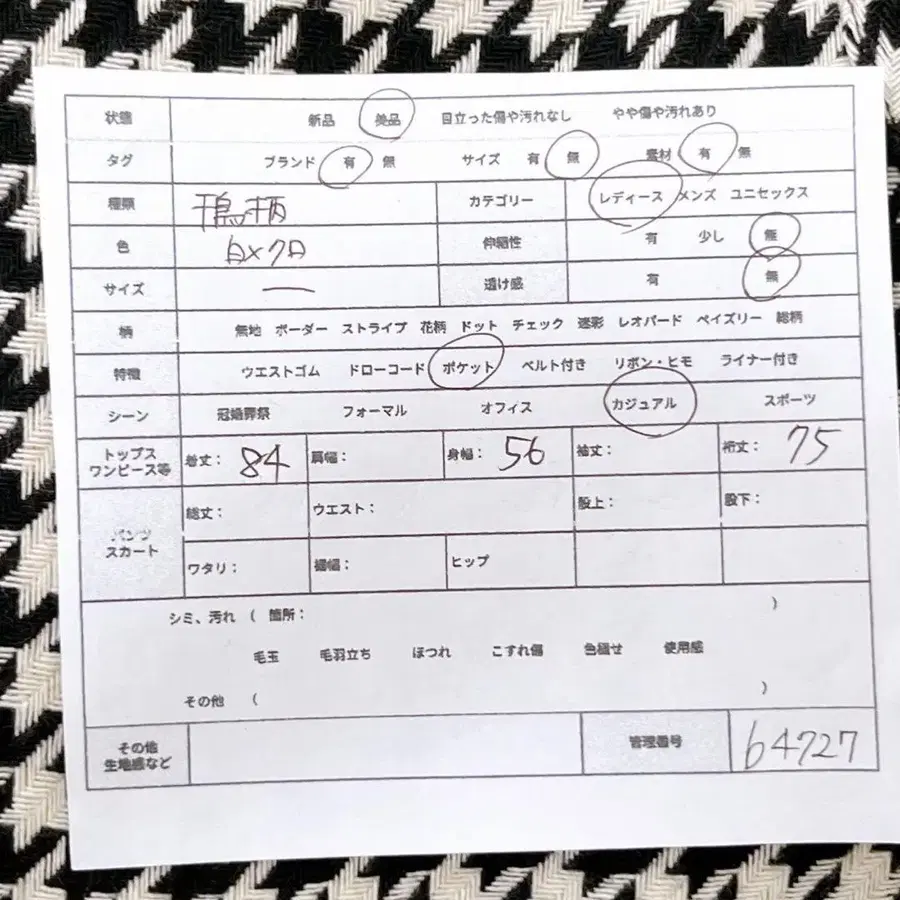 状態 新品 美品 目立った傷や汚れなし やや傷や汚れあり
タグ ブランド 有 無 サイズ 有 無 素材 有 無
種類 千鳥柄 カテゴリー レディース メンズ ユニセックス
色 白×クロ 伸縮性 有 少し 無
サイズ ― 透け感 有 無
柄 無地 ボーダー ストライプ 花柄 ドット チェック 迷彩 レオパード ペイズリー 総柄
特徴 ウエストゴム ドローコード ポケット ベルト付き リボン・ヒモ ライナー付き
シーン 冠婚葬祭 フォーマル オフィス カジュアル スポーツ
トップス
ワンピース等 着丈: 84 肩幅: 身幅: 56 袖丈: 裄丈: 75
パンツ
スカート
総丈: ウエスト: 股上: 股下:
ワタリ: 裾幅: ヒップ
シミ、汚れ ( 箇所: )
毛玉 毛羽立ち ほつれ こすれ傷 色褪せ 使用感
その他 ( )
その他
生地感など 管理番号 64727